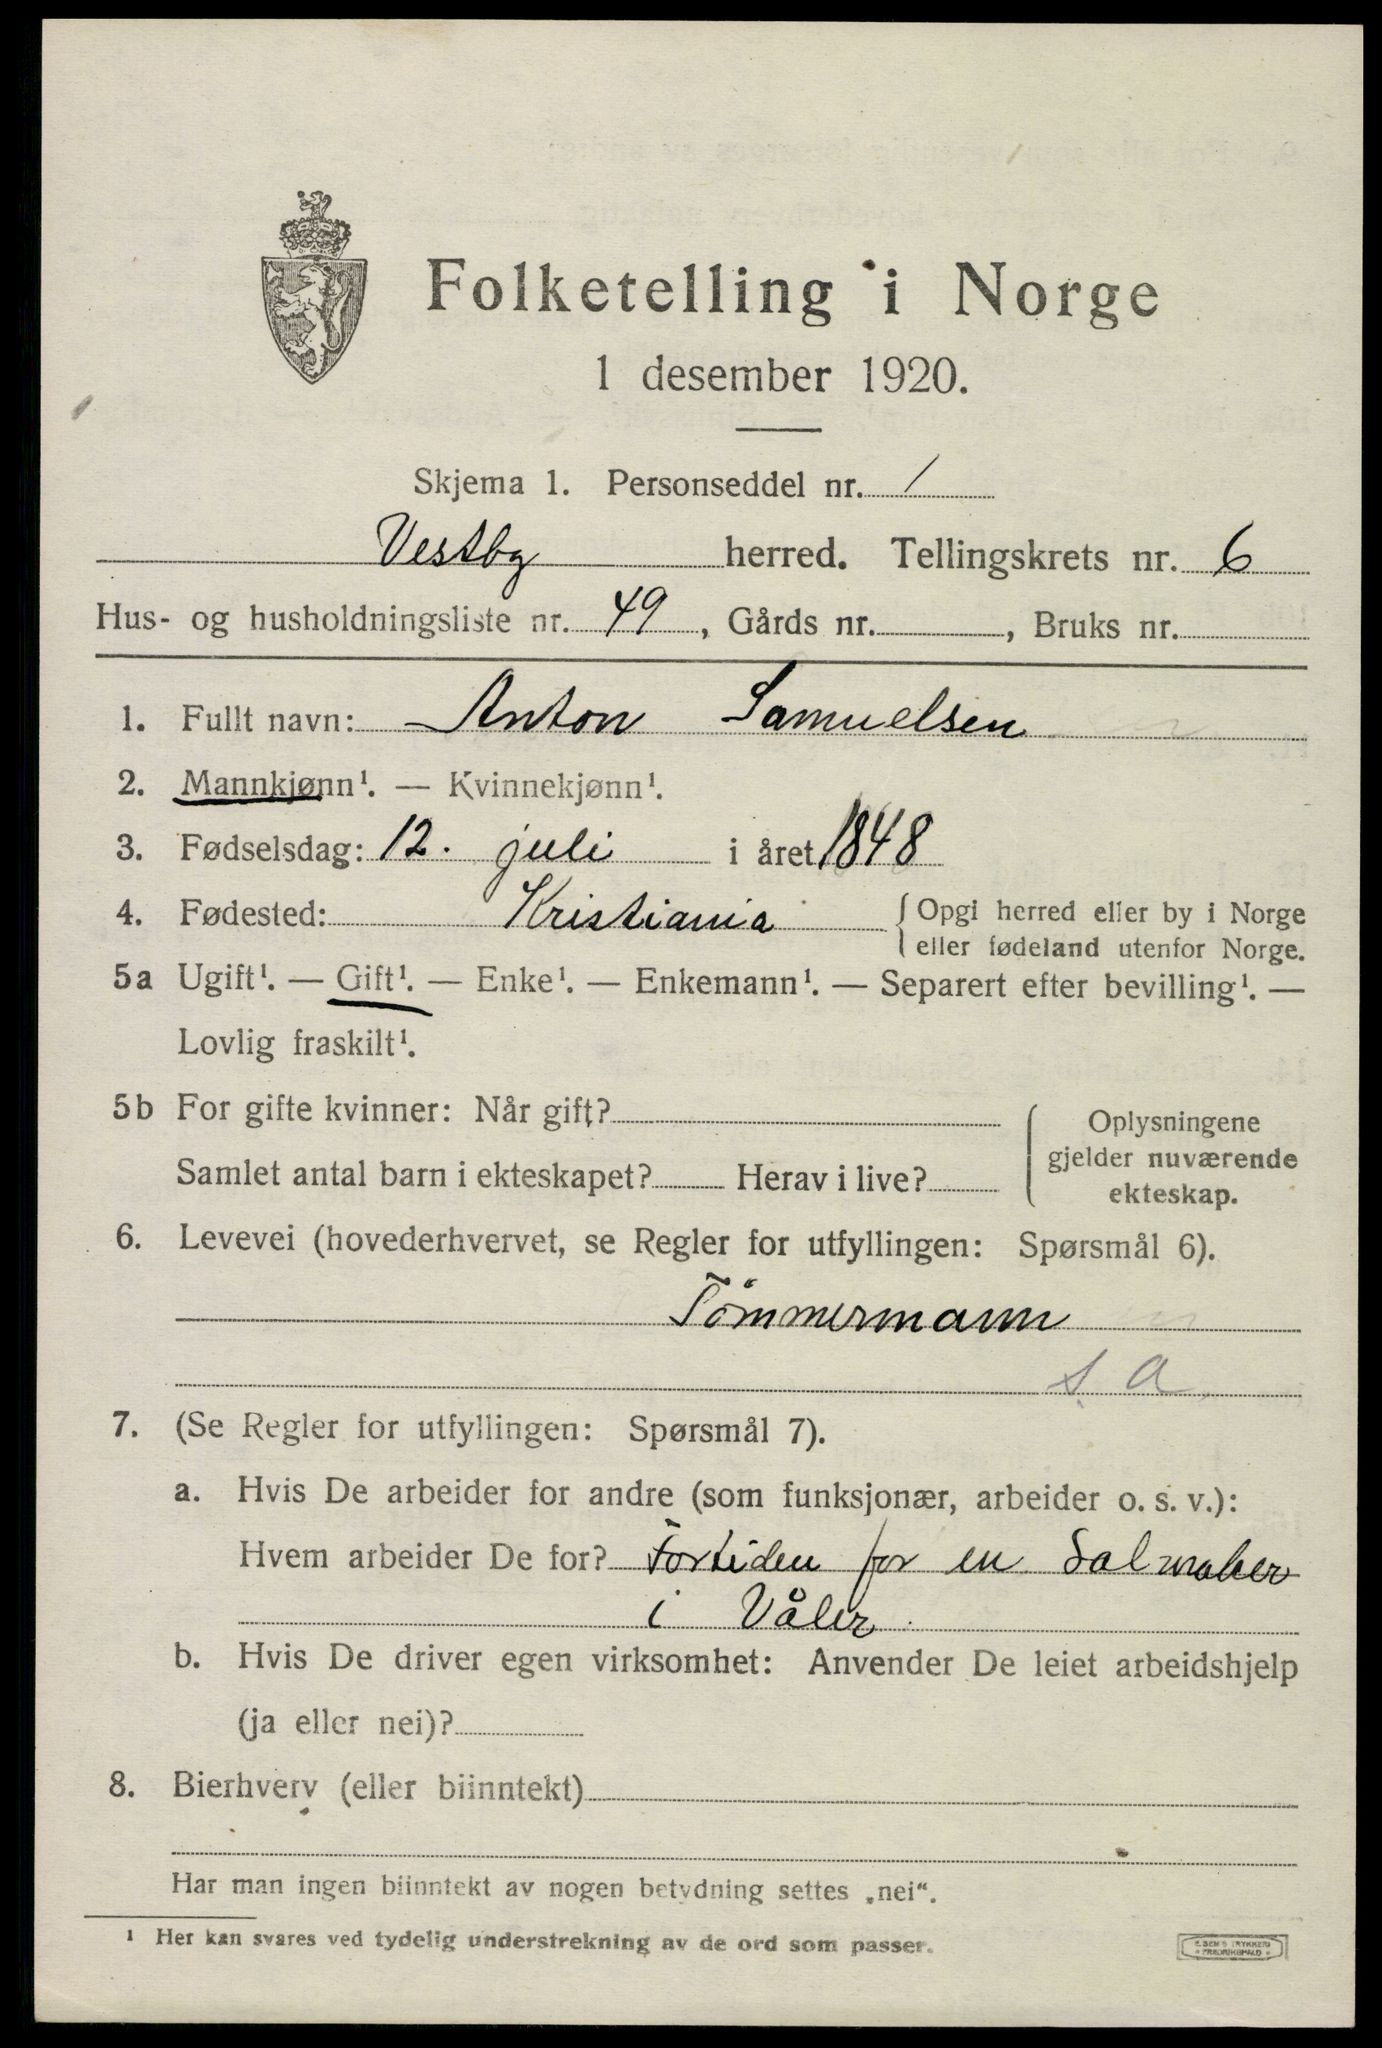 Folketelling i Norge
1 desember 1920.
Skjema 1. Personseddel nr. 1
Vestby herred. Tellingskrets nr. 6
Hus- og husholdningsliste nr. 49, Gårds nr. , Bruks nr.
1. Fullt navn: Anton Samuelsen
2. Mannkjønn¹. — Kvinnekjønn¹.
3. Fødselsdag: 12. juli i året 1848
4. Fødested: Kristiania { Opgi herred eller by i Norge
eller fødeland utenfor Norge.
5a Ugift¹. — Gift¹. — Enke¹. — Enkemann¹. — Separert efter bevilling¹. —
Lovlig fraskilt¹.
5b For gifte kvinner: Når gift?
Samlet antal barn i ekteskapet? Herav i live?
Oplysningene
gjelder nuværende
ekteskap.
6. Levevei (hovederhvervet, se Regler for utfyllingen: Spørsmål 6).
Tömmermann
s. a.
7. (Se Regler for utfyllingen: Spørsmål 7).
a. Hvis De arbeider for andre (som funksjonær, arbeider o. s. v.):
Hvem arbeider De for? Fortiden for en Salmaker
i Våler.
b. Hvis De driver egen virksomhet: Anvender De leiet arbeidshjelp
(ja eller nei)?
8. Bierhverv (eller biinntekt)
Har man ingen biinntekt av nogen betydning settes „nei".
¹ Her kan svares ved tydelig understrekning av de ord som passer.